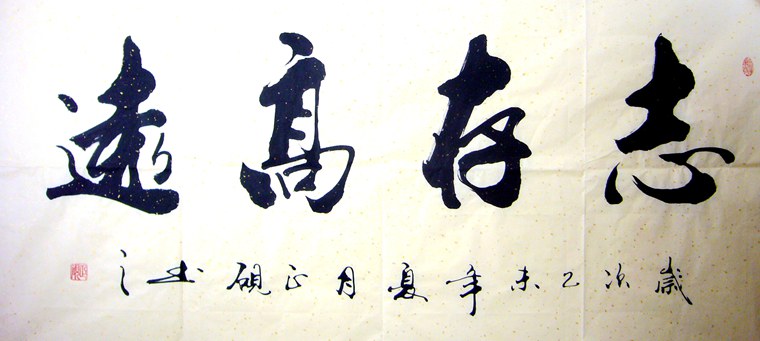 志存高遠
歲次乙未年夏月正硯书之